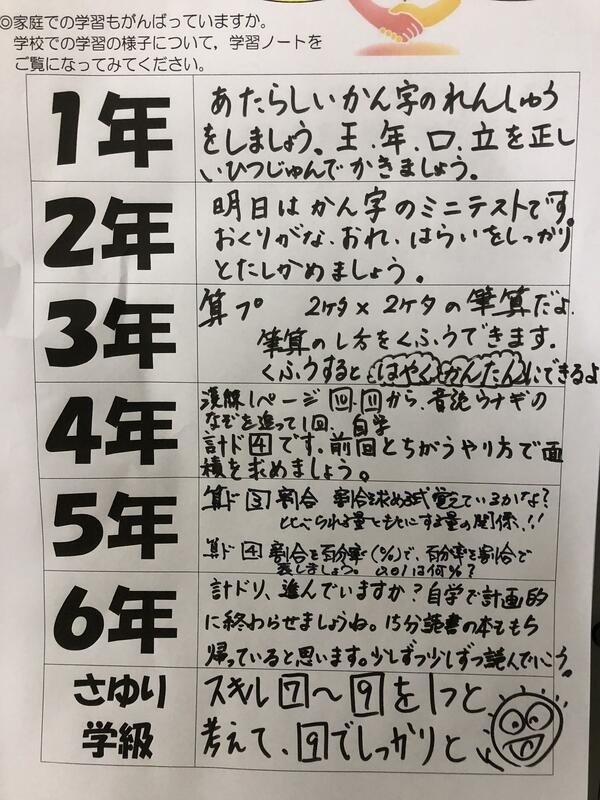 ◎家庭での学習もがんばっていますか。
学校での学習の様子について，学習ノートを
ご覧になってみてください。
1年
あたらしいかん字のれんしゅう
をしましょう。王、年、口、立を正し
いひつじゅんでかきましょう。
2年
明日はかん字のミニテストです。
おくりがな、おれ、はらいをしっかり
とたしかめましょう。
3年
算プ 2ケタ×2ケタの筆算だよ。
筆算のし方をくふうできます。
くふうするとはやくかんたんにできるよ
4年
漢解1ページ 10、11から、音読ウナギの
なぞを追って1回、自学
計ド4です。前回とちがうやり方で面
積を求めましょう。
5年
算ド3 割合 割合を求める式覚えているかな？
比べられる量ともとにする量の関係、!!
算ド4 割合を百分率(%)で、百分率を割合で
表しましょう。 0.01は何%？
6年
計ドリ、進んでいますか？自学で計画的
に終わらせましょうね。15分読書の本ももち
帰っていると思います。少しずつ少しずつ読んでいこう。
さゆり
学級
スキル7～9を1つと
考えて、9でしっかりと